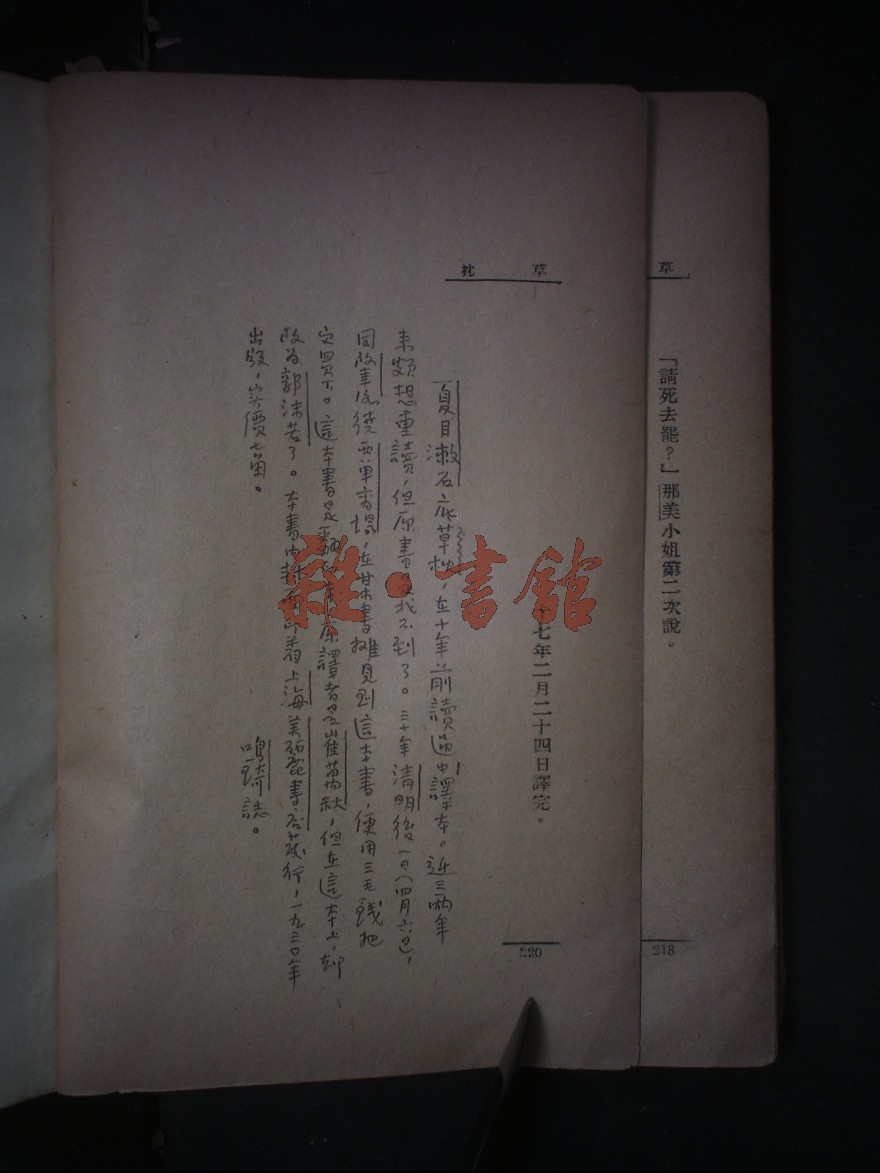 草
「請死去罷？」那美小姐第二次說。
218
草枕
十七年二月二十四日譯完。
220
夏目漱石底草枕，在十年前讀過中譯本。近三兩年
來頗想重讀，但原書找不到了。三十年清明後一日（四月六日），
因故車繞西單商場，在某書攤見到這本書，便用三毛錢把
它買下。這本書是翻印，原譯者是崔萬秋，但在這本上，却
改為郭沫若了。本書內封面印着上海美麗書店發行，一九三〇年
出版，實價七角。
鳴琦誌。
雜·書館